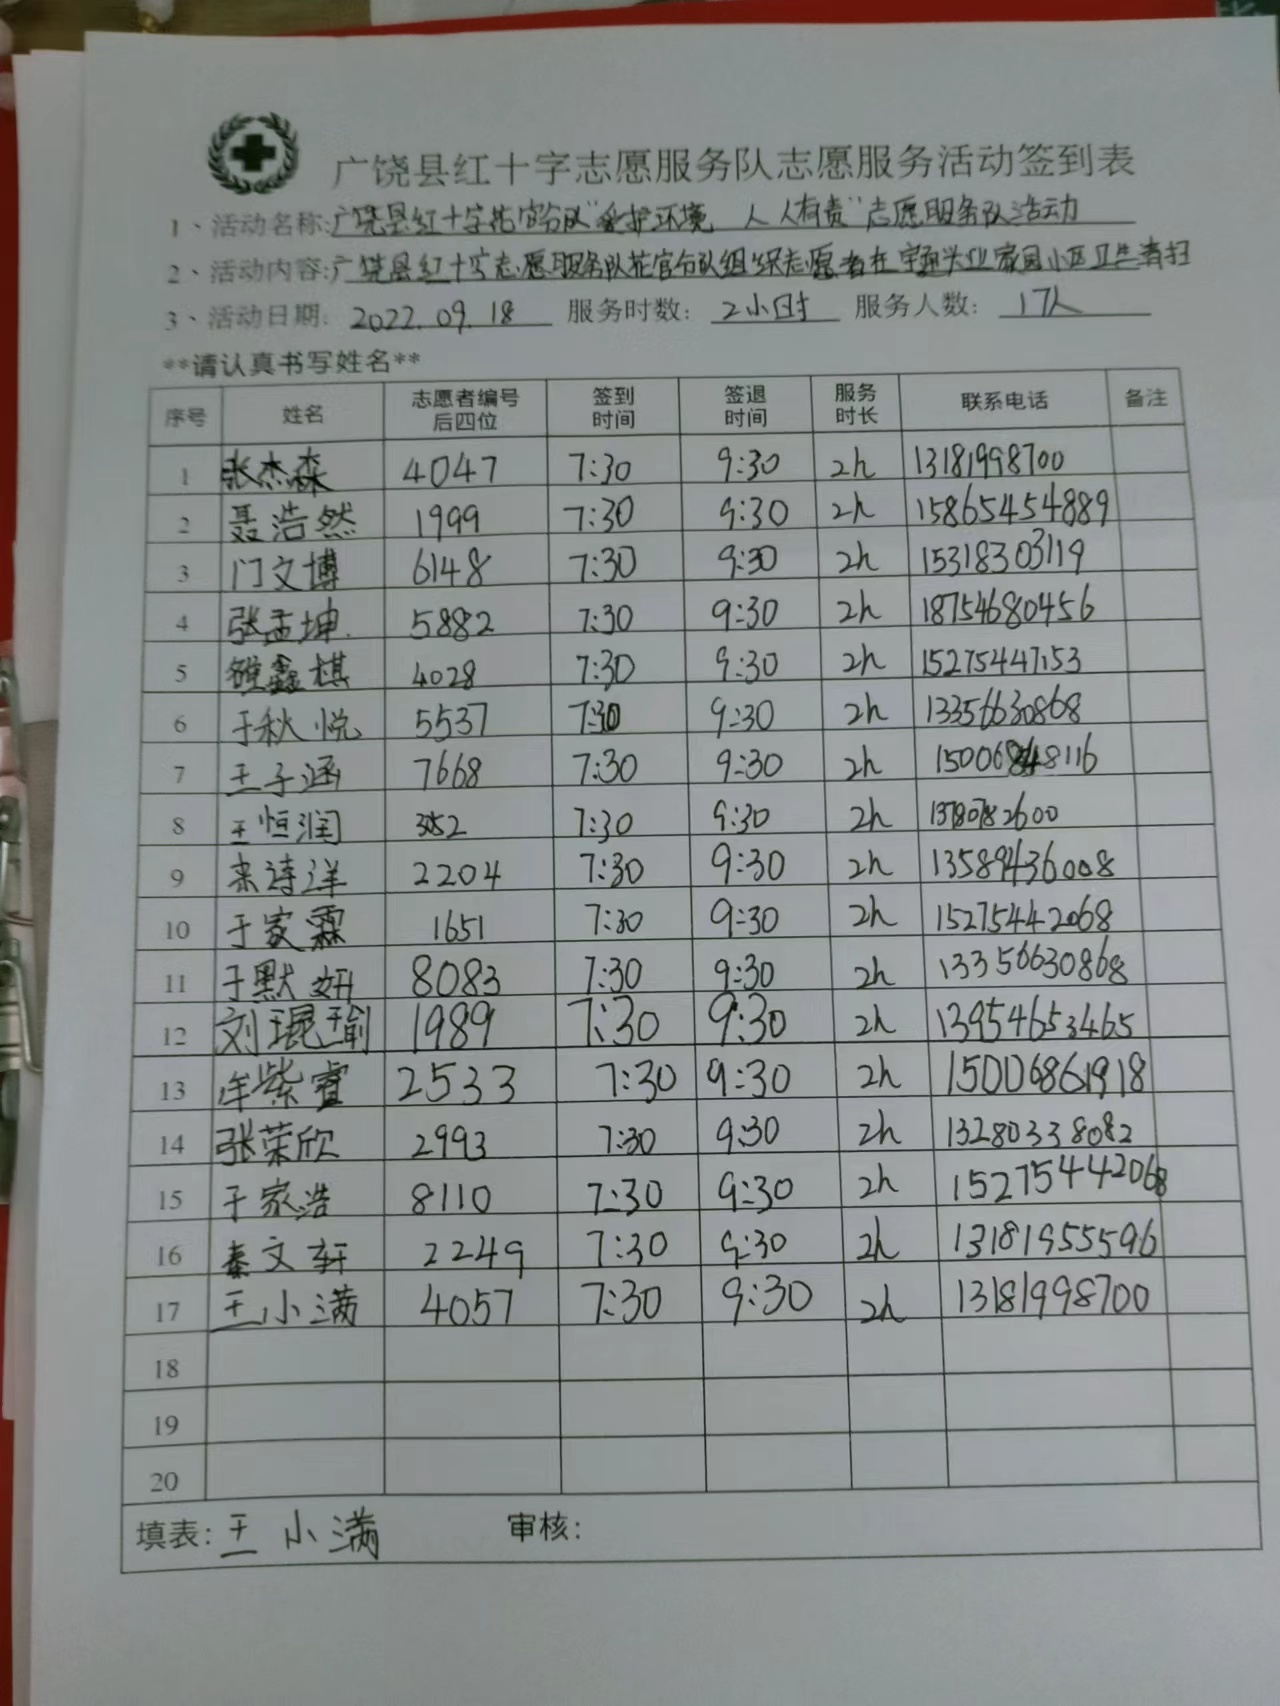 广饶县红十字志愿服务队志愿服务活动签到表
1、活动名称:广饶县红十字花官分队"爱护环境 人人有责"志愿服务队活动
2、活动内容:广饶县红十字志愿服务队花官分队组织志愿者在宇通兴业家园小区卫生清扫
3、活动日期: 2022.09.18 服务时数: 2小时 服务人数: 17人
**请认真书写姓名**
序号 姓名 志愿者编号后四位 签到时间 签退时间 服务时长 联系电话 备注
1 张杰森 4047 7:30 9:30 2h 13181998700
2 聂浩然 1999 7:30 9:30 2h 15865454889
3 门文博 6148 7:30 9:30 2h 15318303119
4 张孟坤 5882 7:30 9:30 2h 18754680456
5 鑫棋 4028 7:30 9:30 2h 15275447153
6 于秋悦 5537 7:30 9:30 2h 13356630868
7 王子涵 7668 7:30 9:30 2h
8 王恒润 7:30 9:30 2h
9 宋诗洋 2204 7:30 9:30 2h 13589436008
10 于家霖 1651 7:30 9:30 2h 15275442068
11 于默妍 8083 7:30 9:30 2h 13356630868
12 刘琨瑜 1989 7:30 9:30 2h 13954653465
13 牟紫睿 2533 7:30 9:30 2h 15006861918
14 张荣欣 2993 7:30 9:30 2h 13280338082
15 于家浩 8110 7:30 9:30 2h 15275442068
16 秦文轩 2249 7:30 9:30 2h 13181955596
17 王小满 4057 7:30 9:30 2h 13181998700
18
19
20
填表: 王小满 审核: